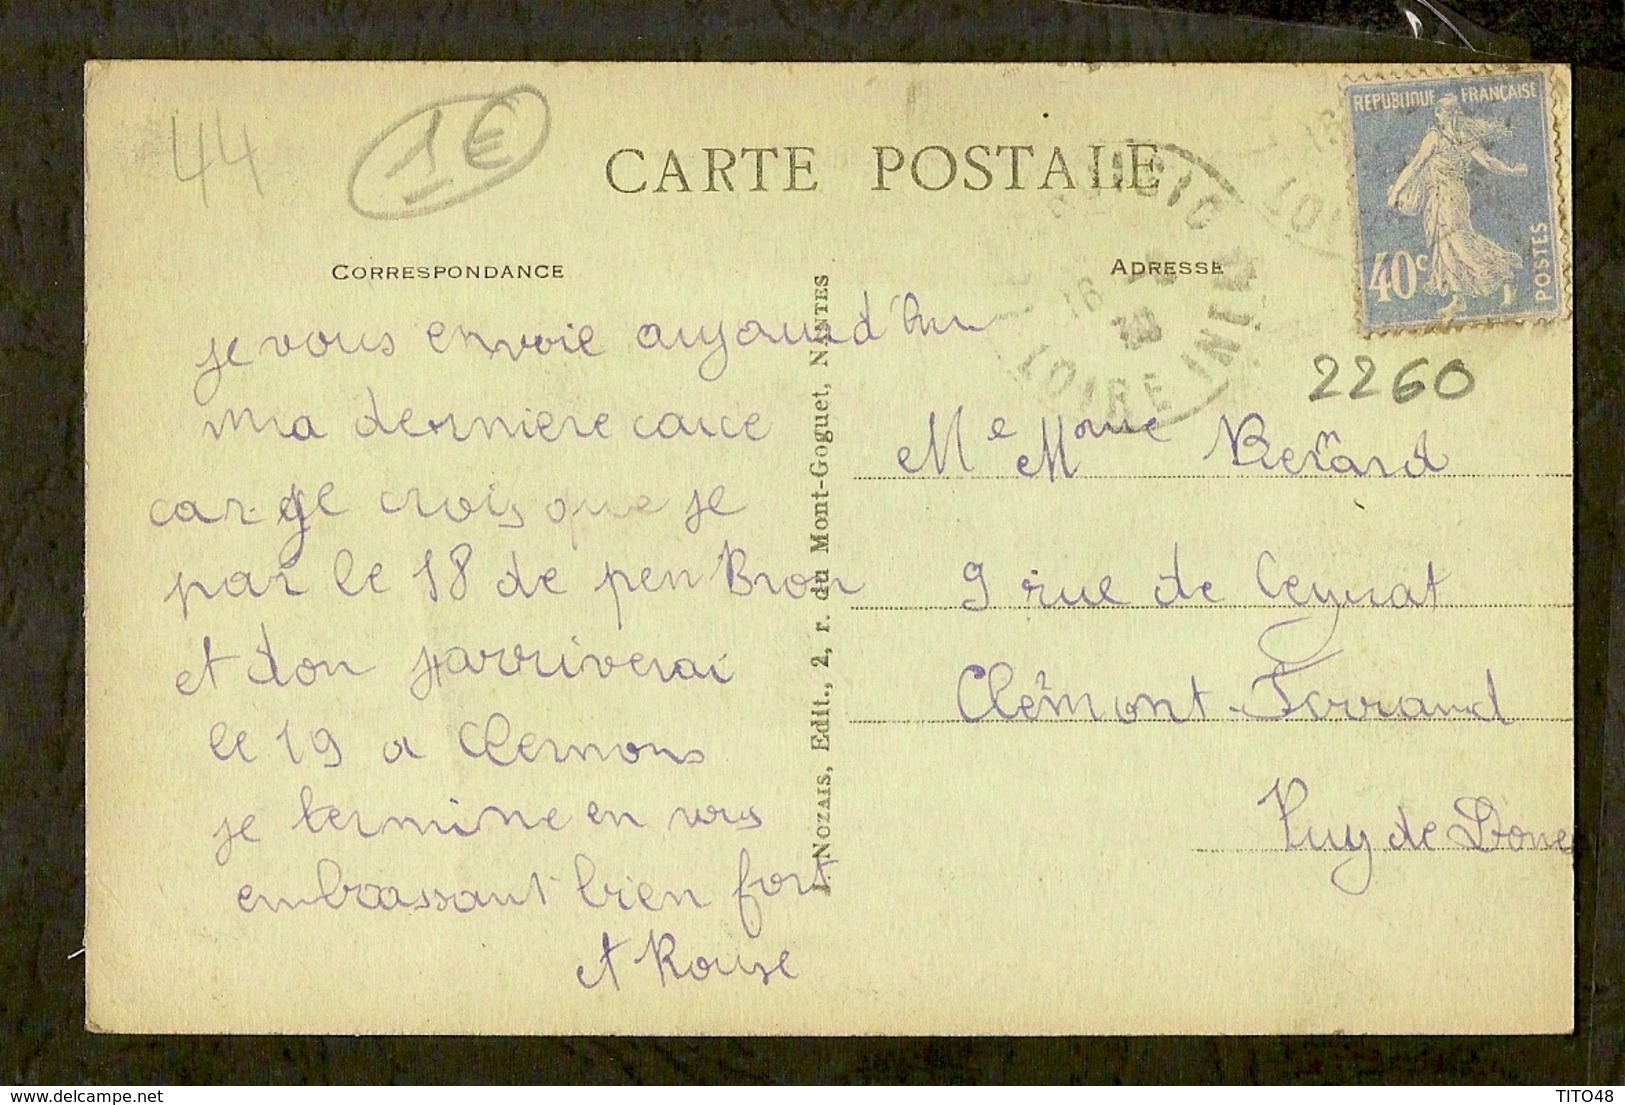 44
1€
CARTE POSTALE
CORRESPONDANCE
ADRESSE
REPUBLIQUE FRANÇAISE
40c
POSTES
LOIRE INF
2260
je vous envoie aujourd'hui
ma derniere carce
car je crois que je
par le 18 de pen Bron
et don j'arriverai
le 19 a Clermons
je termine en vous
embrassant bien fort
et Rouse
J. NOZAIS, Edit., 2, r. du Mont-Goguet, NANTES
Me Mome Berard
9 rue de Ceyrat
Clermont-Ferrand
Puy de Dome
TITO48